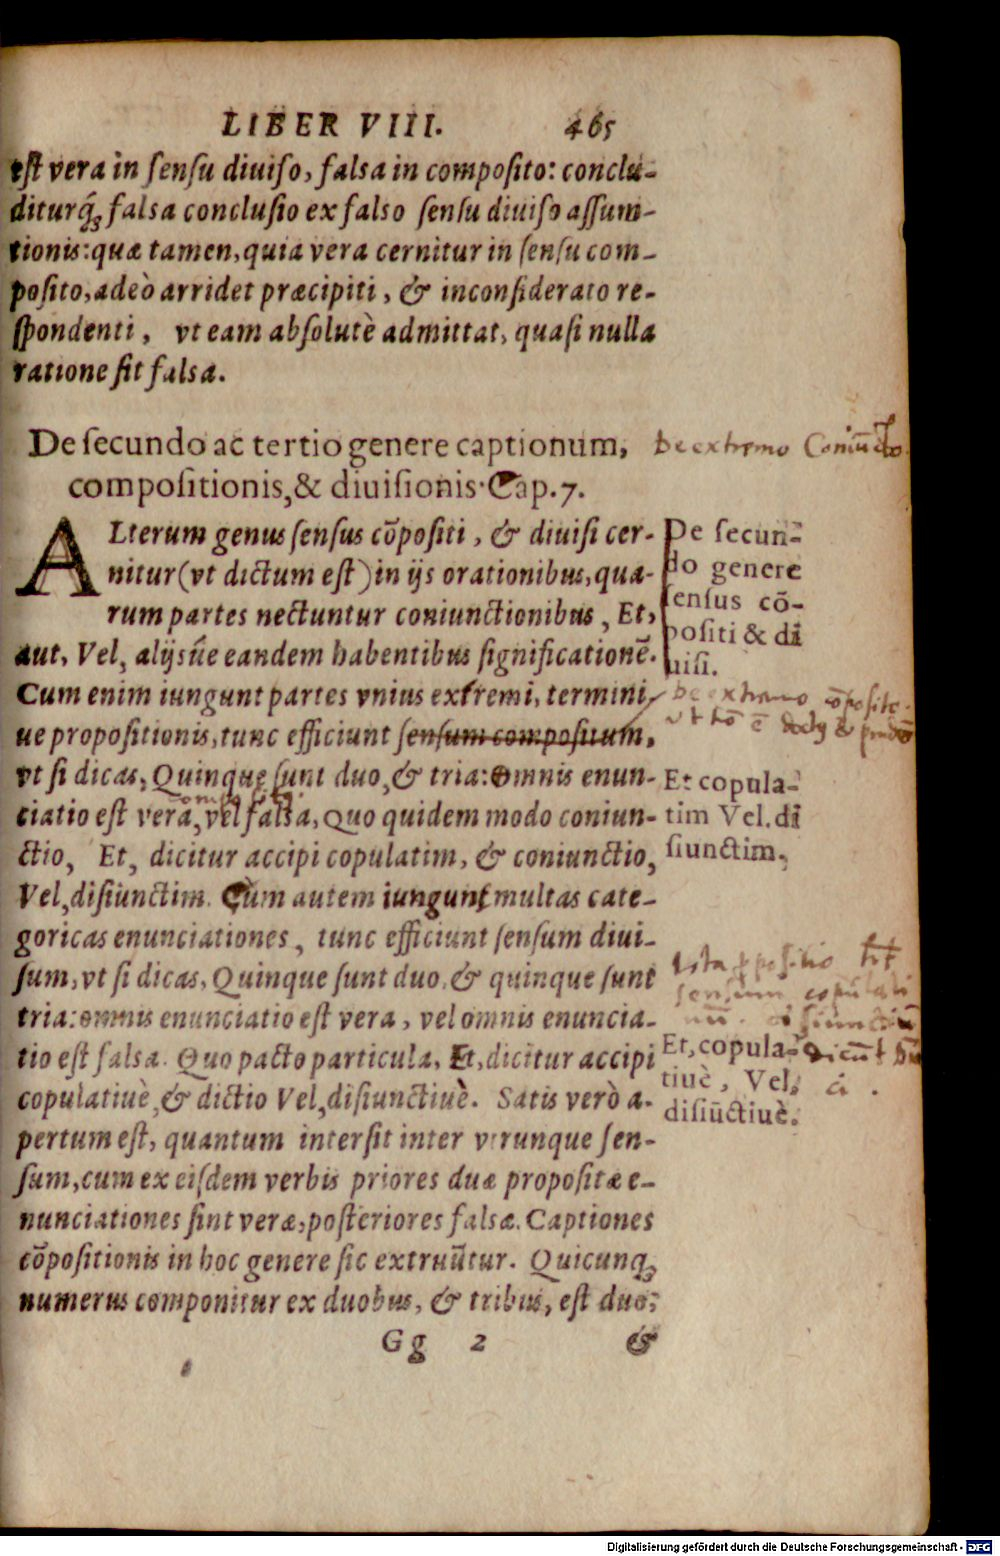 LIBER VIII. 465
est vera in sensu diuiso, falsa in composito: conclu-
diturq́; falsa conclusio ex falso sensu diuiso assum-
tionis: quæ tamen, quia vera cernitur in sensu com-
posito, adeò arridet præcipiti, & inconsiderato re-
spondenti, vt eam absolutè admittat, quasi nulla
ratione sit falsa.
De secundo ac tertio genere captionum,
compositionis, & diuisionis. Cap. 7.
De extremo Coniūcto.
ALterum genus sensus cōpositi, & diuisi cer-
nitur (vt dictum est) in ijs orationibus, qua-
rum partes nectuntur coniunctionibus, Et,
aut, Vel, alijsúe eandem habentibus significationē.
Cum enim iungunt partes vnius extremi, termini
ue propositionis, tunc efficiunt sensum compositum,
vt si dicas, Quinque sunt duo, & tria: omnis enun-
ciatio est vera, vel falsa, Quo quidem modo coniun-
ctio, Et, dicitur accipi copulatim, & coniunctio,
Vel, disiunctim. Cùm autem iungunt multas cate-
goricas enunciationes, tunc efficiunt sensum diui-
sum, vt si dicas, Quinque sunt duo, & quinque sunt
tria: omnis enunciatio est vera, vel omnis enuncia-
tio est falsa. Quo pacto particula, Et, dicitur accipi
copulatiuè, & dictio Vel, disiunctiuè. Satis verò a-
pertum est, quantum intersit inter vtrunque sen-
sum, cum ex eisdem verbis priores duæ propositæ e-
nunciationes sint veræ, posteriores falsæ. Captiones
cōpositionis in hoc genere sic extruūtur. Quicunq;
numerus componitur ex duobus, & tribus, est duo,
Gg 2 &
De secun-
do genere
sensus cō-
positi & di
uisi.
De extremo cōposito
vt
Et copula-
tim Vel. di
siunctim.
Ista
sensum copulati
Et, copula-
tiuè, Vel,
disiūctiuè.
Digitalisierung gefördert durch die Deutsche Forschungsgemeinschaft - DFG